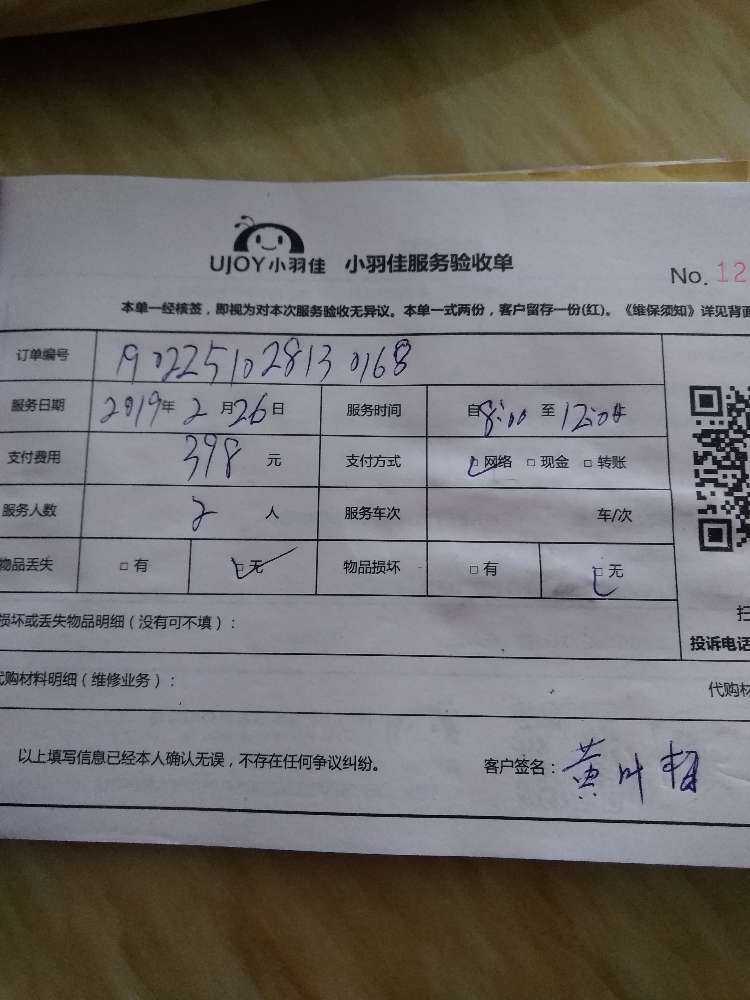 UJOY小羽佳 小羽佳服务验收单
No. 12
本单一经核签，即视为对本次服务验收无异议。本单一式两份，客户留存一份(红)。《维保须知》详见背面
订单编号 190225102813 0168
服务日期 2019年 2月26日 服务时间 自8:00 至 12:00
支付费用 398 元 支付方式 □网络 □现金 □转账
服务人数 2 人 服务车次 车/次
物品丢失 □有 □无 物品损坏 □有 □无
损坏或丢失物品明细（没有可不填）：
扫
投诉电话
代购材料明细（维修业务）：
代购材
以上填写信息已经本人确认无误，不存在任何争议纠纷。 客户签名：黄叶